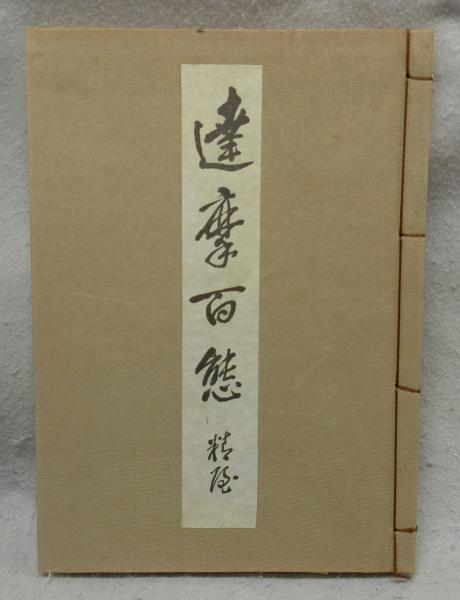 達摩百態 精